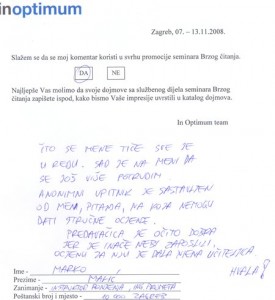 inoptimum
Zagreb, 07. – 13.11.2008.
Slažem se da se moj komentar koristi u svrhu promocije seminara Brzog čitanja.
DA NE
Najljepše Vas molimo da svoje dojmove sa službenog dijela seminara Brzog
čitanja zapišete ispod, kako bismo Vaše impresije uvrstili u katalog dojmova.
In Optimum team
ŠTO SE MENE TIČE SVE JE
U REDU. SAD JE NA MENI DA
SE JOŠ VIŠE POTRUDIM.
ANONIMNI UPITNIK JE SASTAVLJEN
OD MENI, PITANJA, NA KOJA NEMOGU
DATI STRUČNE OCJENE.
PREDAVAČICA JE OČITO DOBRA
JER JE INAČE NEBI ZAPOSLILI,
OCJENU ZA NJU JE DALA MENA UČITELJICA
HVALA!
Ime - MARKO
Prezime - MATIĆ
Zanimanje - INSTRUKTOR RONJENJA, PROMETA
Poštanski broj i mjesto - 10 000 ZAGREB